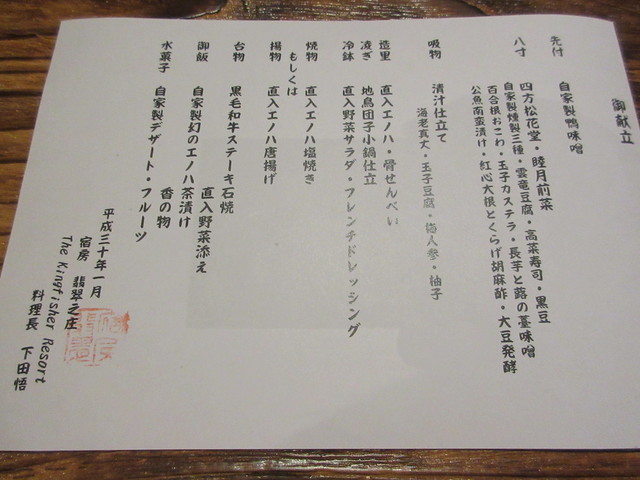 御献立
先付　自家製鴨味噌
八寸　四方松花堂・睦月前菜
自家製燻製三種・雲竜豆腐・高菜寿司・黒豆
百合根おこわ・玉子カステラ・長芋と蕗の薹味噌
公魚南蛮漬け・紅心大根とくらげ胡麻酢・大豆発酵
吸物　清汁仕立て
海老真丈・玉子豆腐・梅人参・柚子
造里　直入エノハ・骨せんべい
凌ぎ　地鳥団子小鍋仕立
冷鉢　直入野菜サラダ・フレンチドレッシング
焼物　直入エノハ塩焼き
もしくは
揚物　直入エノハ唐揚げ
台物　黒毛和牛ステーキ石焼
直入野菜添え
御飯　自家製幻のエノハ茶漬け
香の物
水菓子　自家製デザート・フルーツ
平成三十年一月
宿房　翡翠之庄
The Kingfisher Resort
料理長　下田悟